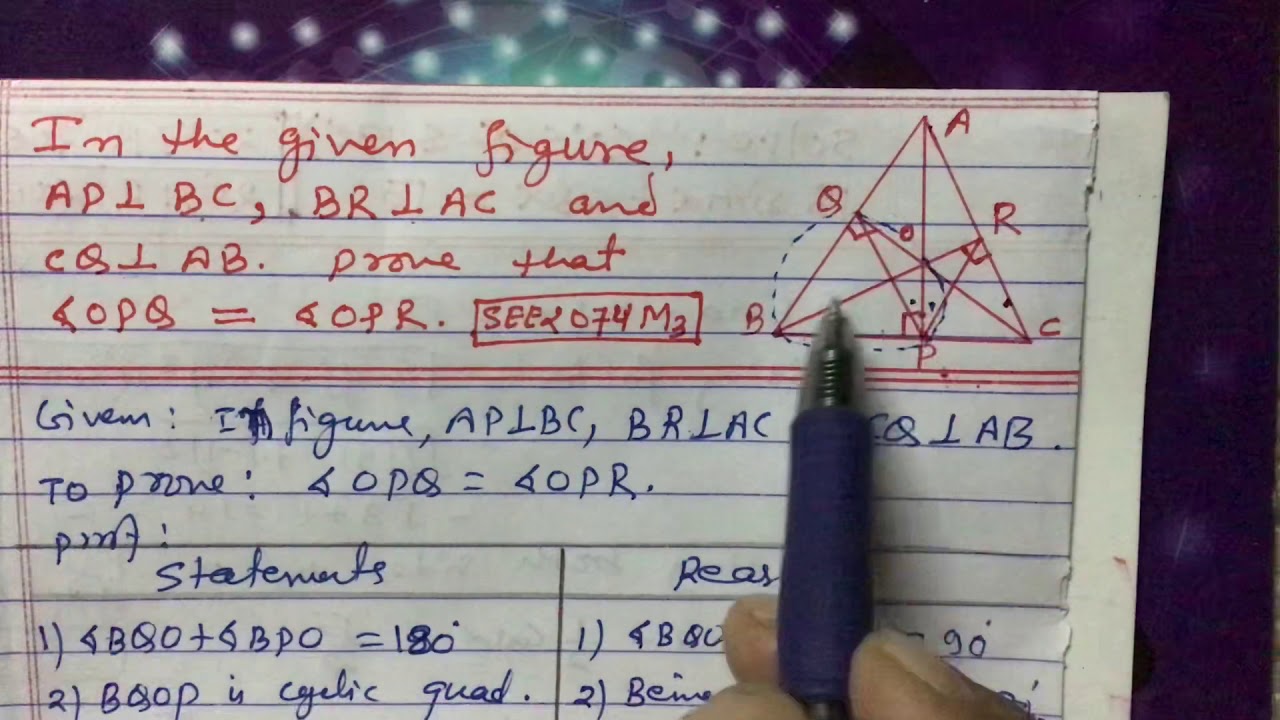 In the given figure,
AP⊥BC, BR⊥AC and
CQ⊥AB. prove that
∢OPQ = ∢OPR. SEE2074M3
A
Q
O
R
B
C
P
Given: In figure, AP⊥BC, BR⊥AC CQ⊥AB.
To prove: ∢OPQ = ∢OPR.
proof:
Statements
1) ∢BQO+∢BPO = 180°
2) BQOP is cyclic quad.
Reas
1) ∢BQO = 90°
2) Being